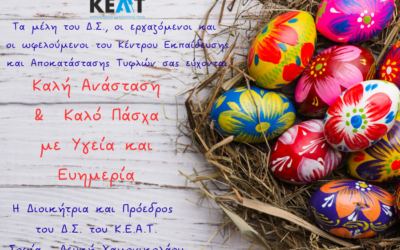 ΚΕΑΤ
Τα μέλη του Δ.Σ., οι εργαζόμενοι και
οι ωφελούμενοι του Κέντρου Εκπαίδευσης
και Αποκατάστασης Τυφλών σας εύχονται
Καλή Ανάσταση
& Καλό Πάσχα
με Υγεία και
Ευημερία
Η Διοικήτρια και Πρόεδρος
του Δ.Σ. του Κ.Ε.Α.Τ.